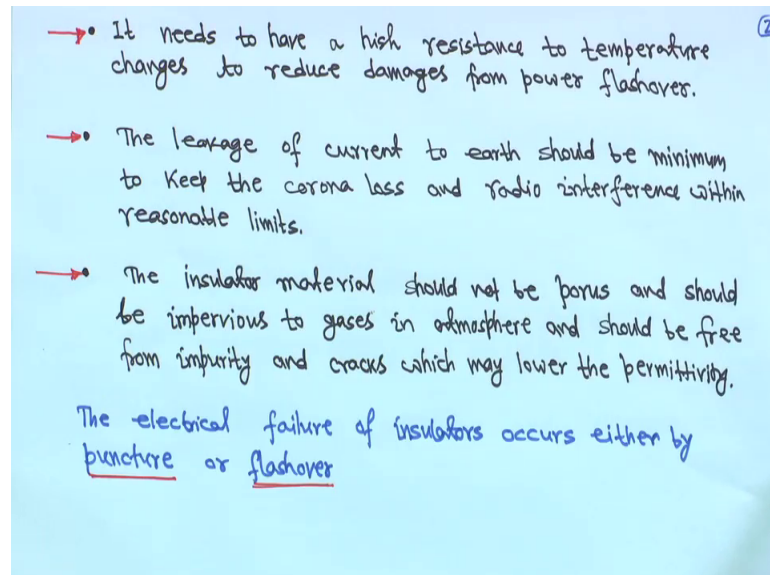 2
• It needs to have a high resistance to temperature
changes to reduce damages from power flashover.
• The leakage of current to earth should be minimum
to keep the corona loss and radio interference within
reasonable limits.
• The insulator material should not be porus and should
be impervious to gases in atmosphere and should be free
from impurity and cracks which may lower the permittivity.
The electrical failure of insulators occurs either by
puncture or flashover